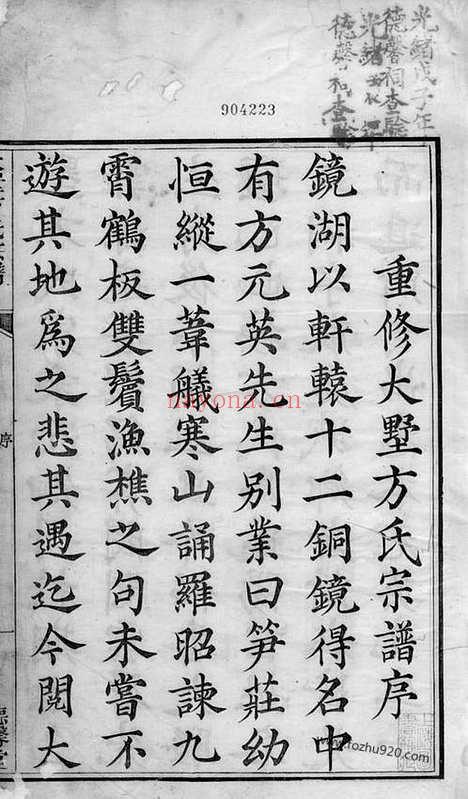 光緒戊子年
德馨祠查驗
904223
重修大墅方氏宗譜序
鏡湖以軒轅十二銅鏡得名中
有方元英先生別業曰笋莊幼
恒縱一葦艤寒山誦羅昭諫九
霄鶴板雙鬢漁樵之句未嘗不
遊其地為之悲其遇迄今閱大
序
nayona.cn
www.rozhu920.com